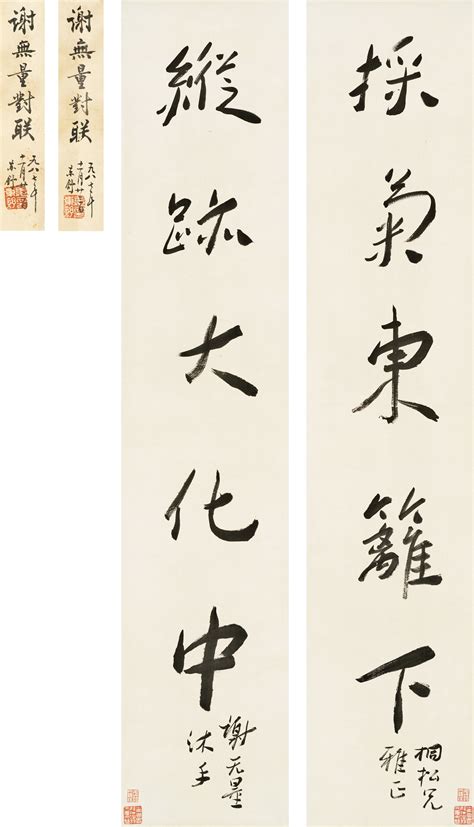 採菊東籬下
桐松兄
雅正
縱跡大化中
謝无量
沐手
謝無量對联
一九八七年
十一月廿
謝無量對联
一九八七年
十一月廿